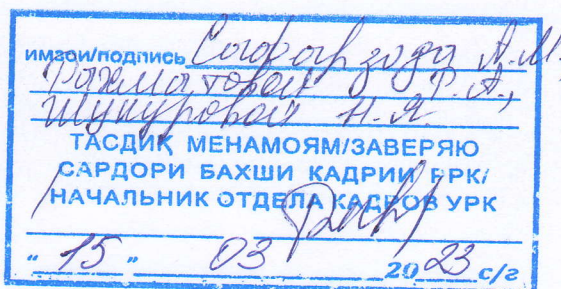 имзои/подпись Сафарзода А.М.
Рахматовой Ф.А.,
Шукуровой Н.Я.
ТАСДИҚ МЕНАМОЯМ/ЗАВЕРЯЮ
САРДОРИ БАХШИ КАДРИИ РРК/
НАЧАЛЬНИК ОТДЕЛА КАДРОВ УРК
" 15 " 03 2023 с/г